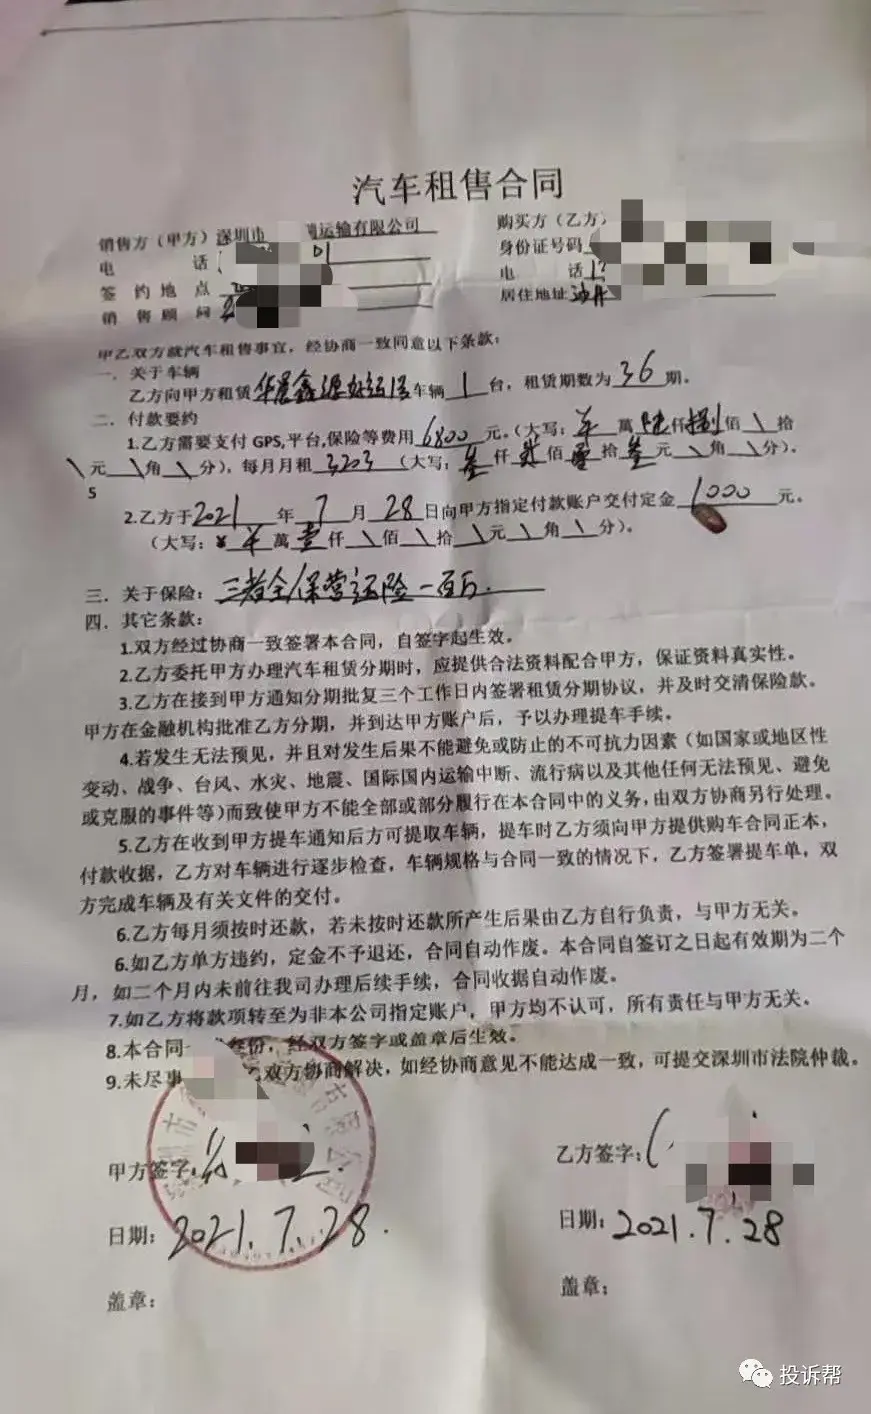 汽车租售合同
销售方（甲方）深圳市 运输有限公司
购买方（乙方）
身份证号码
电 话
电 话 1
签 约 地 点
居住地址
销 售 顾 问
甲乙双方就汽车租售事宜，经协商一致同意以下条款：
一．关于车辆
乙方向甲方租赁 华晨鑫源 车辆 1 台，租赁期数为 36 期。
二．付款要约
1.乙方需要支付GPS,平台,保险等费用 6800 元。（大写： 萬 陆 仟 捌 佰 \ 拾
\ 元 \ 角 \ 分），每月月租 3203 （大写：叁 仟 贰 佰 零 拾 叁 元 \ 角 \ 分）。
5
2.乙方于 2021 年 7 月 28 日向甲方指定付款账户交付定金 1000 元。
（大写：¥ 萬 壹 仟 \ 佰 \ 拾 \ 元 \ 角 \ 分）。
三．关于保险： 三者全保营运险一百万．
四．其它条款：
1.双方经过协商一致签署本合同，自签字起生效。
2.乙方委托甲方办理汽车租赁分期时，应提供合法资料配合甲方，保证资料真实性。
3.乙方在接到甲方通知分期批复三个工作日内签署租赁分期协议，并及时交清保险款。
甲方在金融机构批准乙方分期，并到达甲方账户后，予以办理提车手续。
4.若发生无法预见，并且对发生后果不能避免或防止的不可抗力因素（如国家或地区性
变动、战争、台风、水灾、地震、国际国内运输中断、流行病以及其他任何无法预见、避免
或克服的事件等）而致使甲方不能全部或部分履行在本合同中的义务，由双方协商另行处理。
5.乙方在收到甲方提车通知后方可提取车辆，提车时乙方须向甲方提供购车合同正本，
付款收据，乙方对车辆进行逐步检查，车辆规格与合同一致的情况下，乙方签署提车单，双
方完成车辆及有关文件的交付。
6.乙方每月须按时还款，若未按时还款所产生后果由乙方自行负责，与甲方无关。
6.如乙方单方违约，定金不予退还，合同自动作废。本合同自签订之日起有效期为二个
月，如二个月内未前往我司办理后续手续，合同收据自动作废。
7.如乙方将款项转至为非本公司指定账户，甲方均不认可，所有责任与甲方无关。
8.本合同一 份，经双方签字或盖章后生效。
9.未尽事 乙双方协商解决，如经协商意见不能达成一致，可提交深圳市法院仲裁。
甲方签字：
乙方签字：
日期： 2021.7.28.
日期： 2021.7.28
盖章：
盖章：
投诉帮